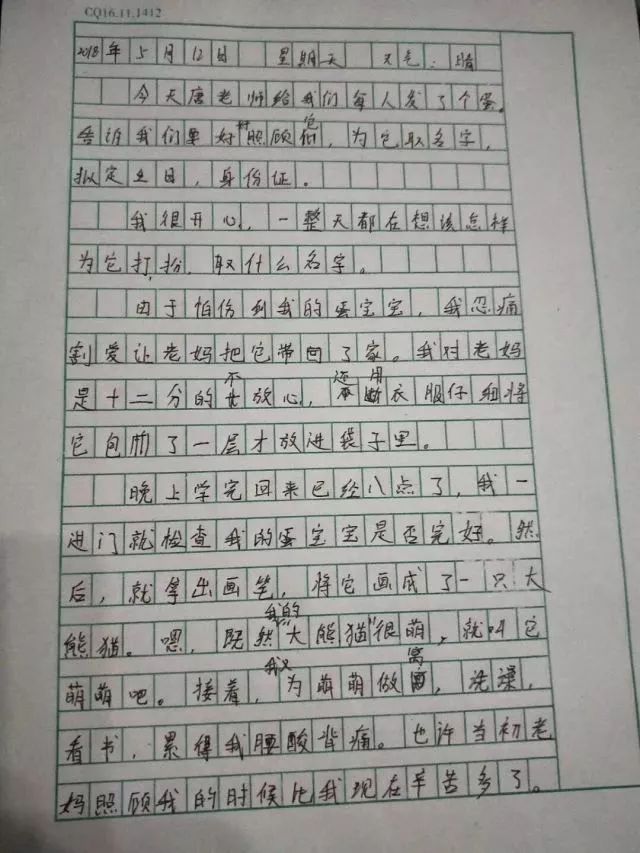 CQ16.11.1412
2018年5月12日 星期天 天气:晴
今天唐老师给我们每人发了个蛋。
告诉我们要好好照顾它们,为它取名字,
拟定生日,身份证。
我很开心,一整天都在想该怎样
为它打扮,取什么名字。
由于怕伤到我的蛋宝宝,我忍痛
割爱让老妈把它带回了家。我对老妈
是十二分的不放心,还用衣服仔细将
它包了一层才放进袋子里。
晚上学完回来已经八点了,我一
进门就检查我的蛋宝宝是否完好。然
后,就拿出画笔,将它画成了一只大
熊猫。嗯,既然我的大熊猫很萌,就叫它
萌萌吧。接着,我又为萌萌做窝,洗澡,
看书,累得我腰酸背痛。也许当初老
妈照顾我的时候比我现在辛苦多了。